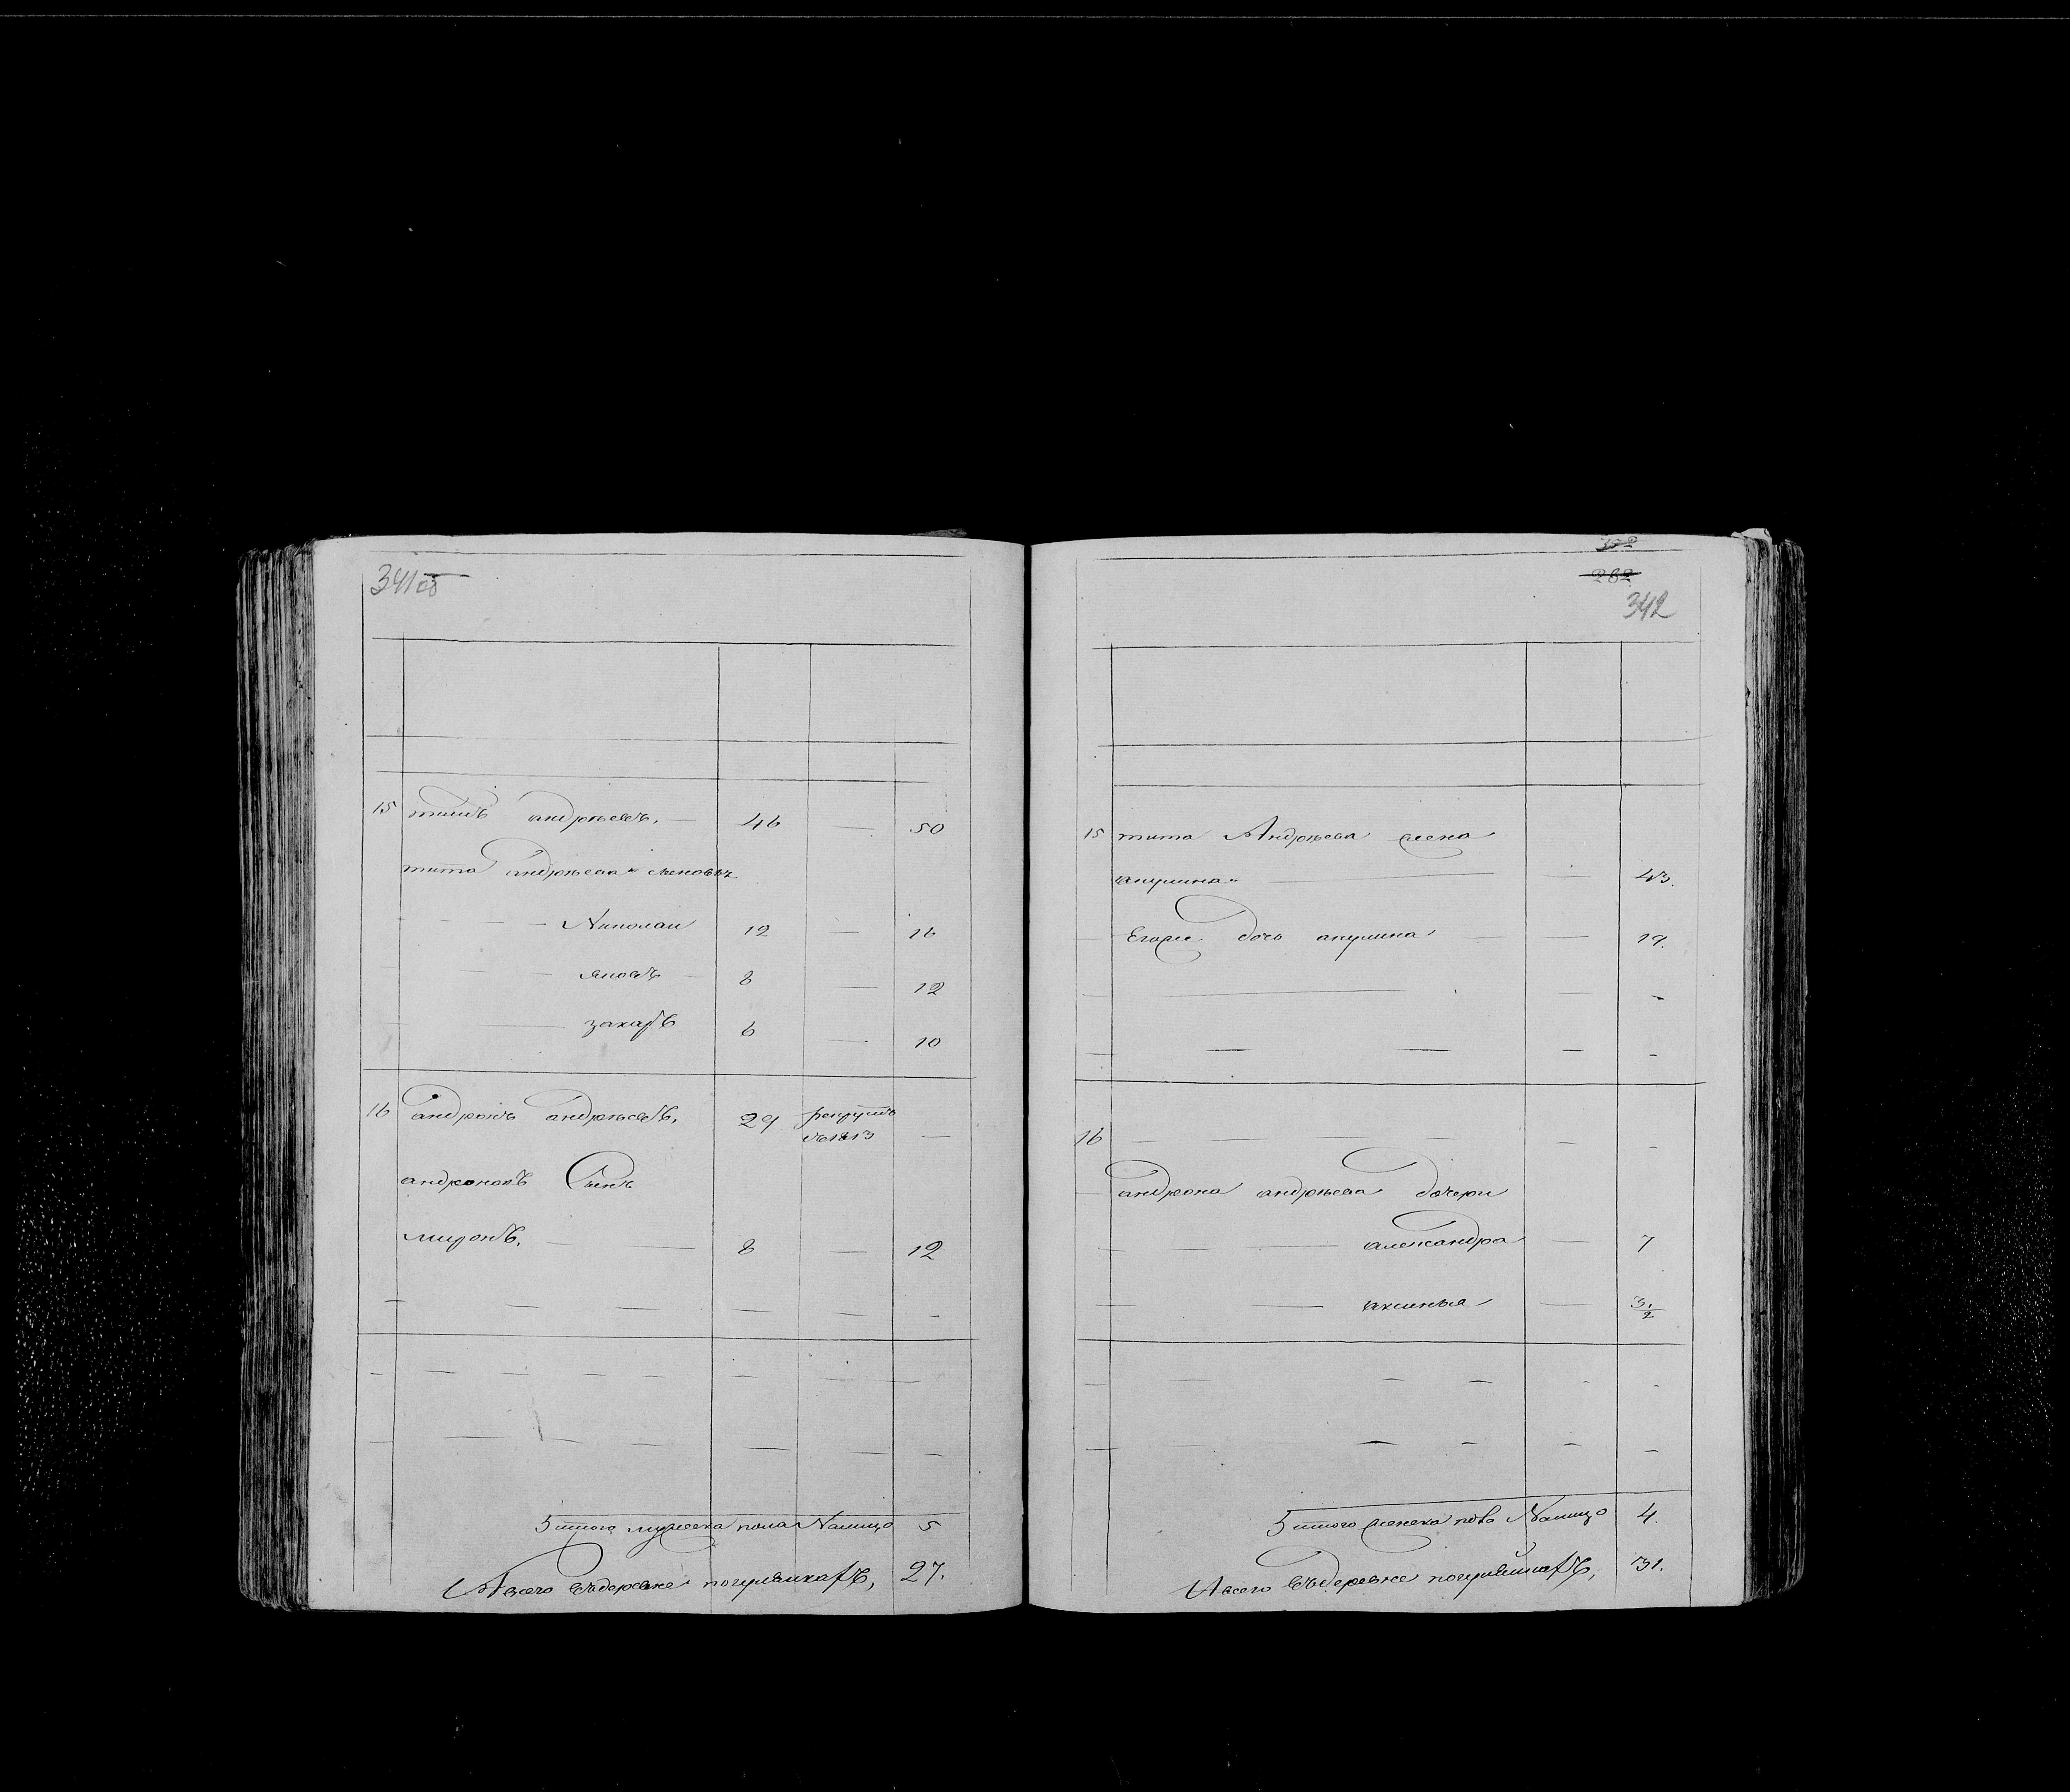 341об
15 титъ андреевъ. — 46 — 50
тита андреева сыновья
— — — Николаи 12 — 16
— — яковъ — 8 — 12
— захаръ 6 — 10
16 андронъ андреевъ. 29 рекрутъ —
въ 1813
андроновъ Сынъ
миронъ. — — 8 — 12
Итого мужеска пола Налицо 5
А всего въ деревне 27.
352
282
342
15 тита Андреева жена
акулина — — 43.
Егоже дочь акулина — — 19.
16 — — — — — —
андрона андреева дочери
— — александра — 7
— — аксинья — 3 1/2
Итого женска пола Налицо 4.
А всего въ деревне 31.